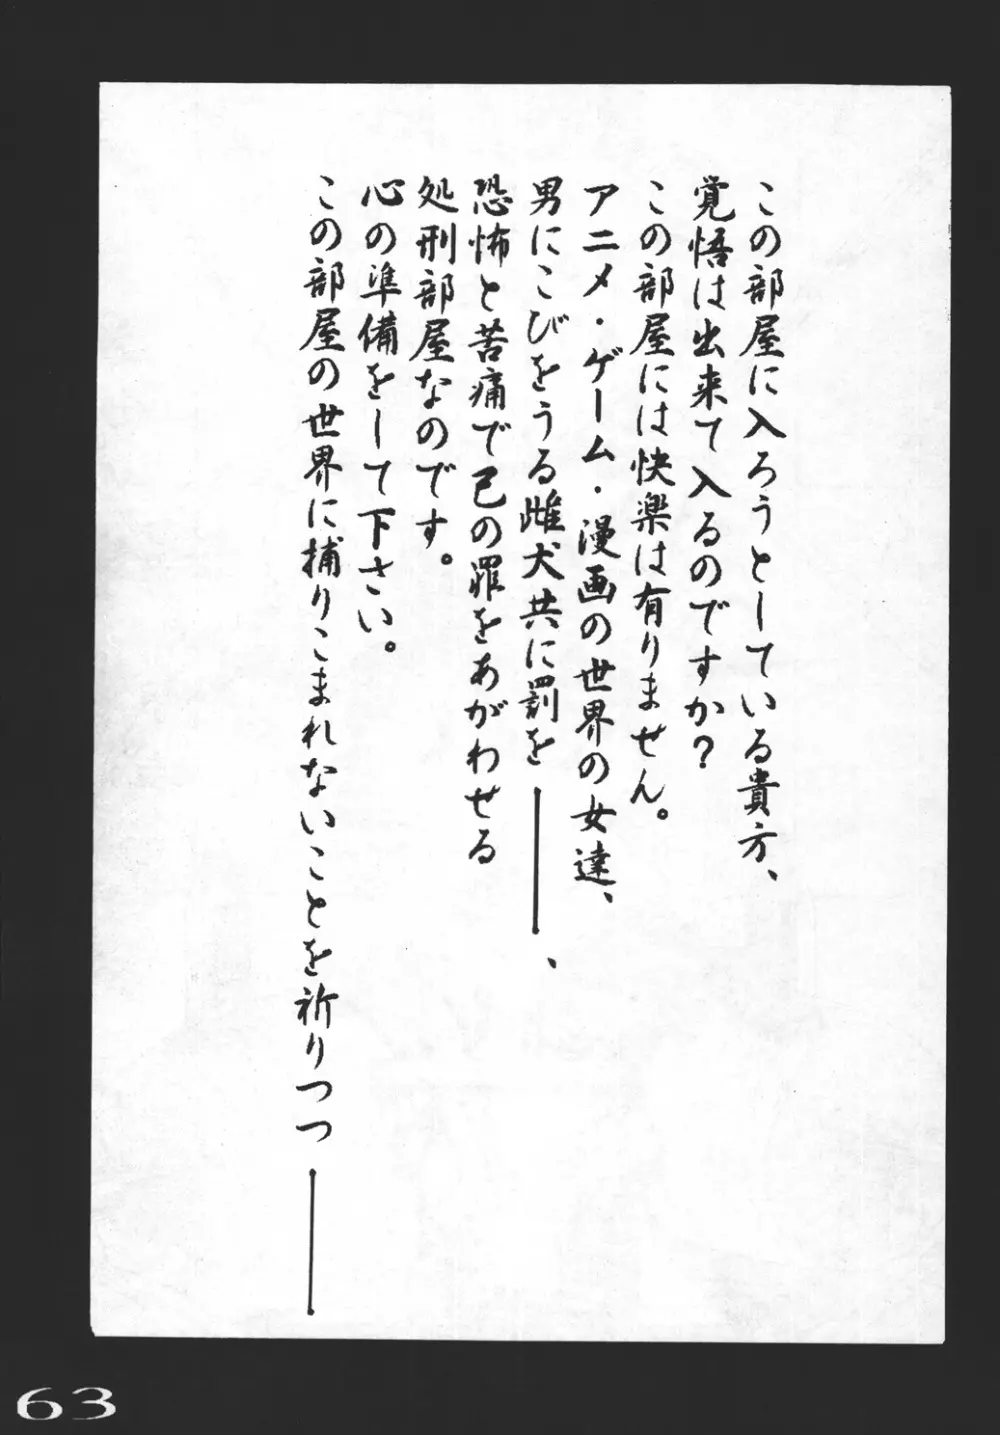 この部屋に入ろうとしている貴方、
覚悟は出来て入るのですか?
この部屋には快楽は有りません。
アニメ・ゲーム・漫画の世界の女達、
男にこびをうる雌犬共に罰を――、
恐怖と苦痛で己の罪をあがわせる
処刑部屋なのです。
心の準備をして下さい。
この部屋の世界に捕りこまれないことを祈りつつ――
63